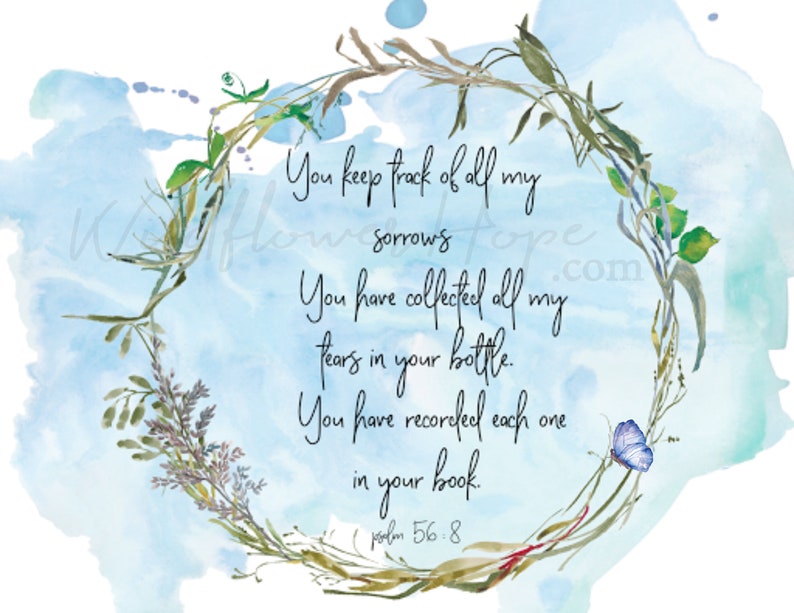 You keep track of all my
sorrows
WildflowerHope
.com
You have collected all my
tears in your bottle.
You have recorded each one
in your book.
psalm 56:8